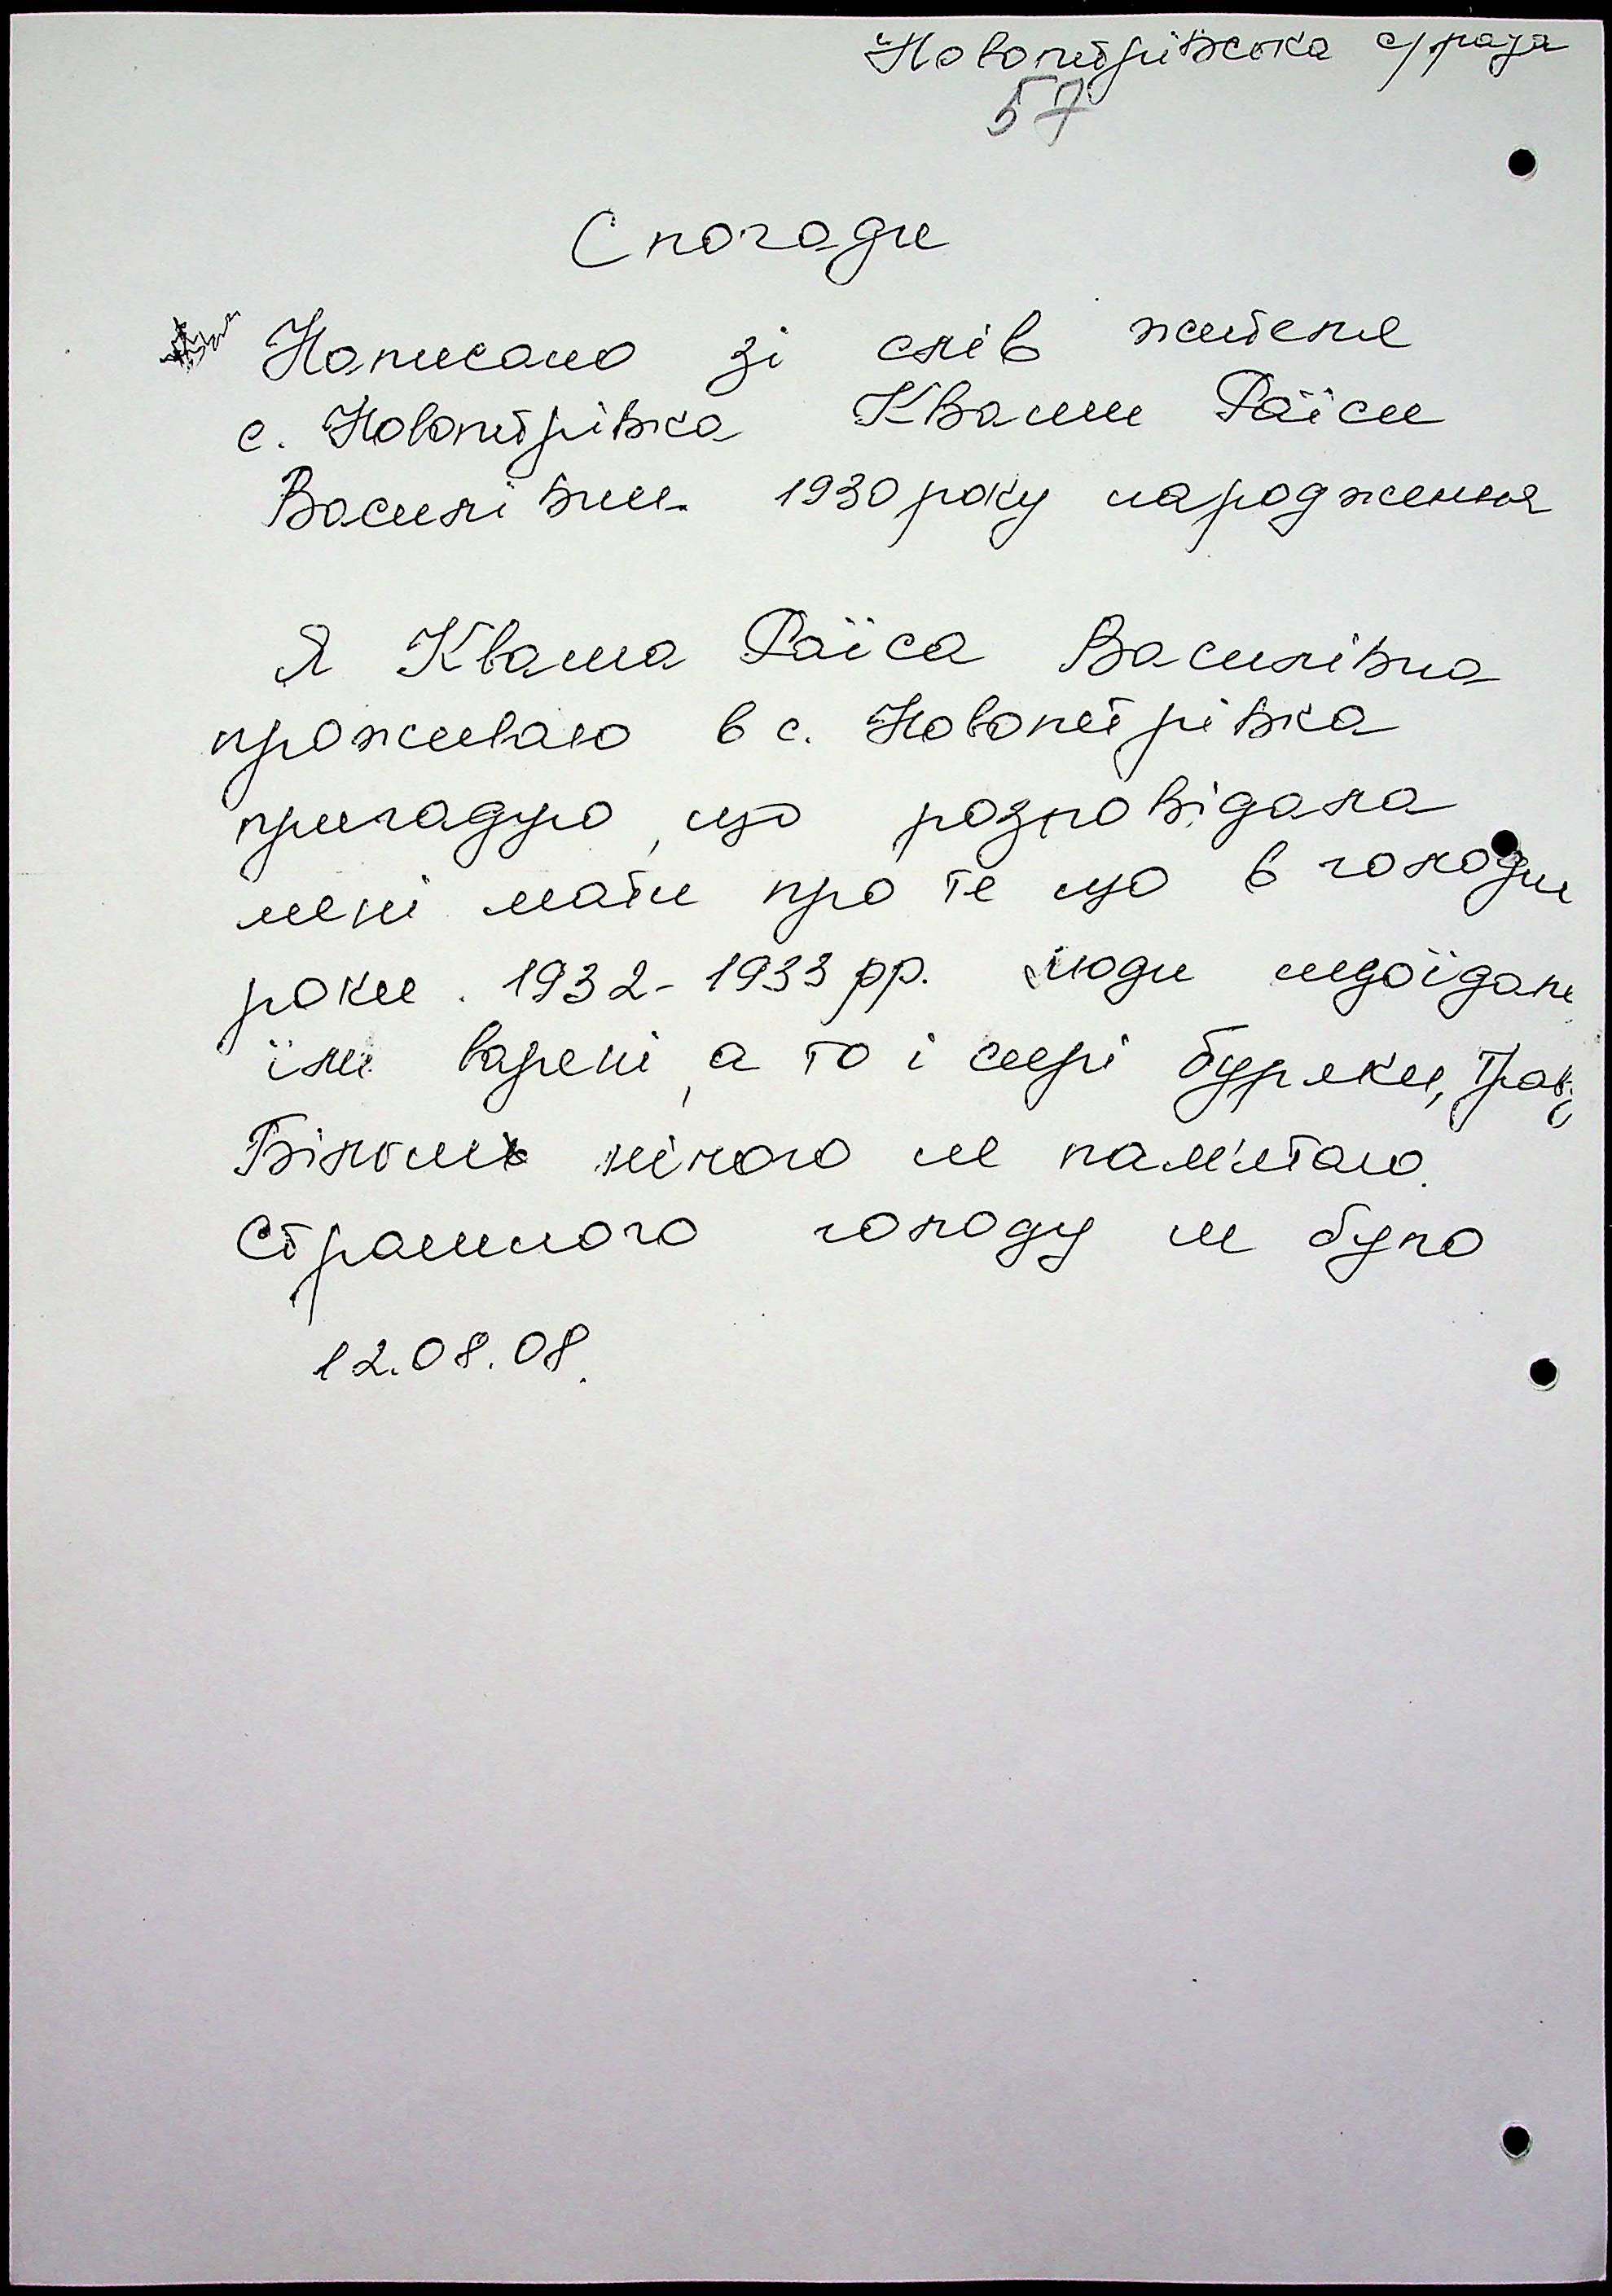 Новопетрівська с/рада
57
Спогади
Написано зі слів жителя
с. Новопетрівка Кваши Раїси
Василівни. 1930 року народження
Я Кваша Раїса Василівна
проживаю в с. Новопетрівка
пригадую, що розповідала
мені мати про те що в голодни
роки. 1932-1933 рр. люди недоїдали
їли варені, а то і сирі буряки, траву
Більш нічого не пам'ятаю.
Страшного голоду не було
12.08.08.